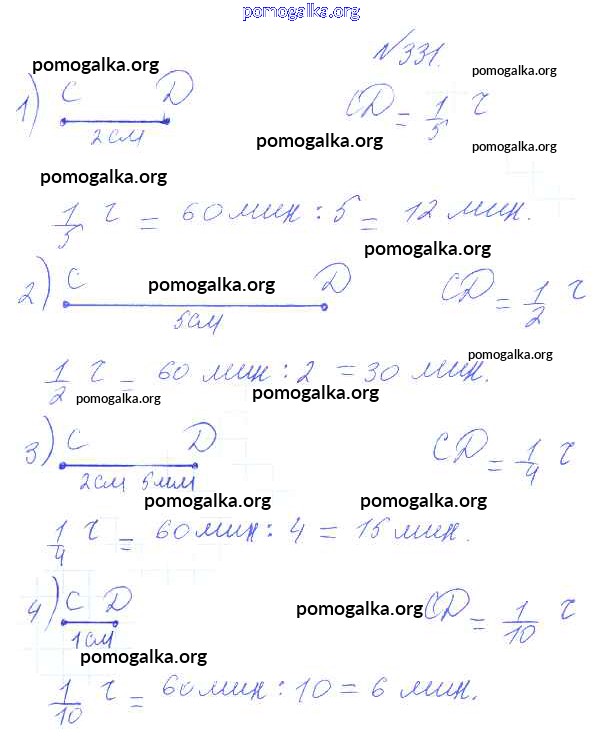 pomogalka.org
№331.
pomogalka.org pomogalka.org
1) C D CD = 1/5 ч
2 см
pomogalka.org pomogalka.org
pomogalka.org
1/5 ч = 60 мин : 5 = 12 мин.
pomogalka.org
2) C D CD = 1/2 ч
pomogalka.org
5 см
pomogalka.org
1/2 ч = 60 мин : 2 = 30 мин.
pomogalka.org pomogalka.org
3) C D CD = 1/4 ч
2 см 5 мм
pomogalka.org pomogalka.org
1/4 ч = 60 мин : 4 = 15 мин.
4) C D CD = 1/10 ч
pomogalka.org
1 см
pomogalka.org
1/10 ч = 60 мин : 10 = 6 мин.